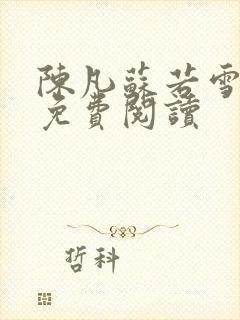 陳凡蘇若雪
免費閱讀
哲科